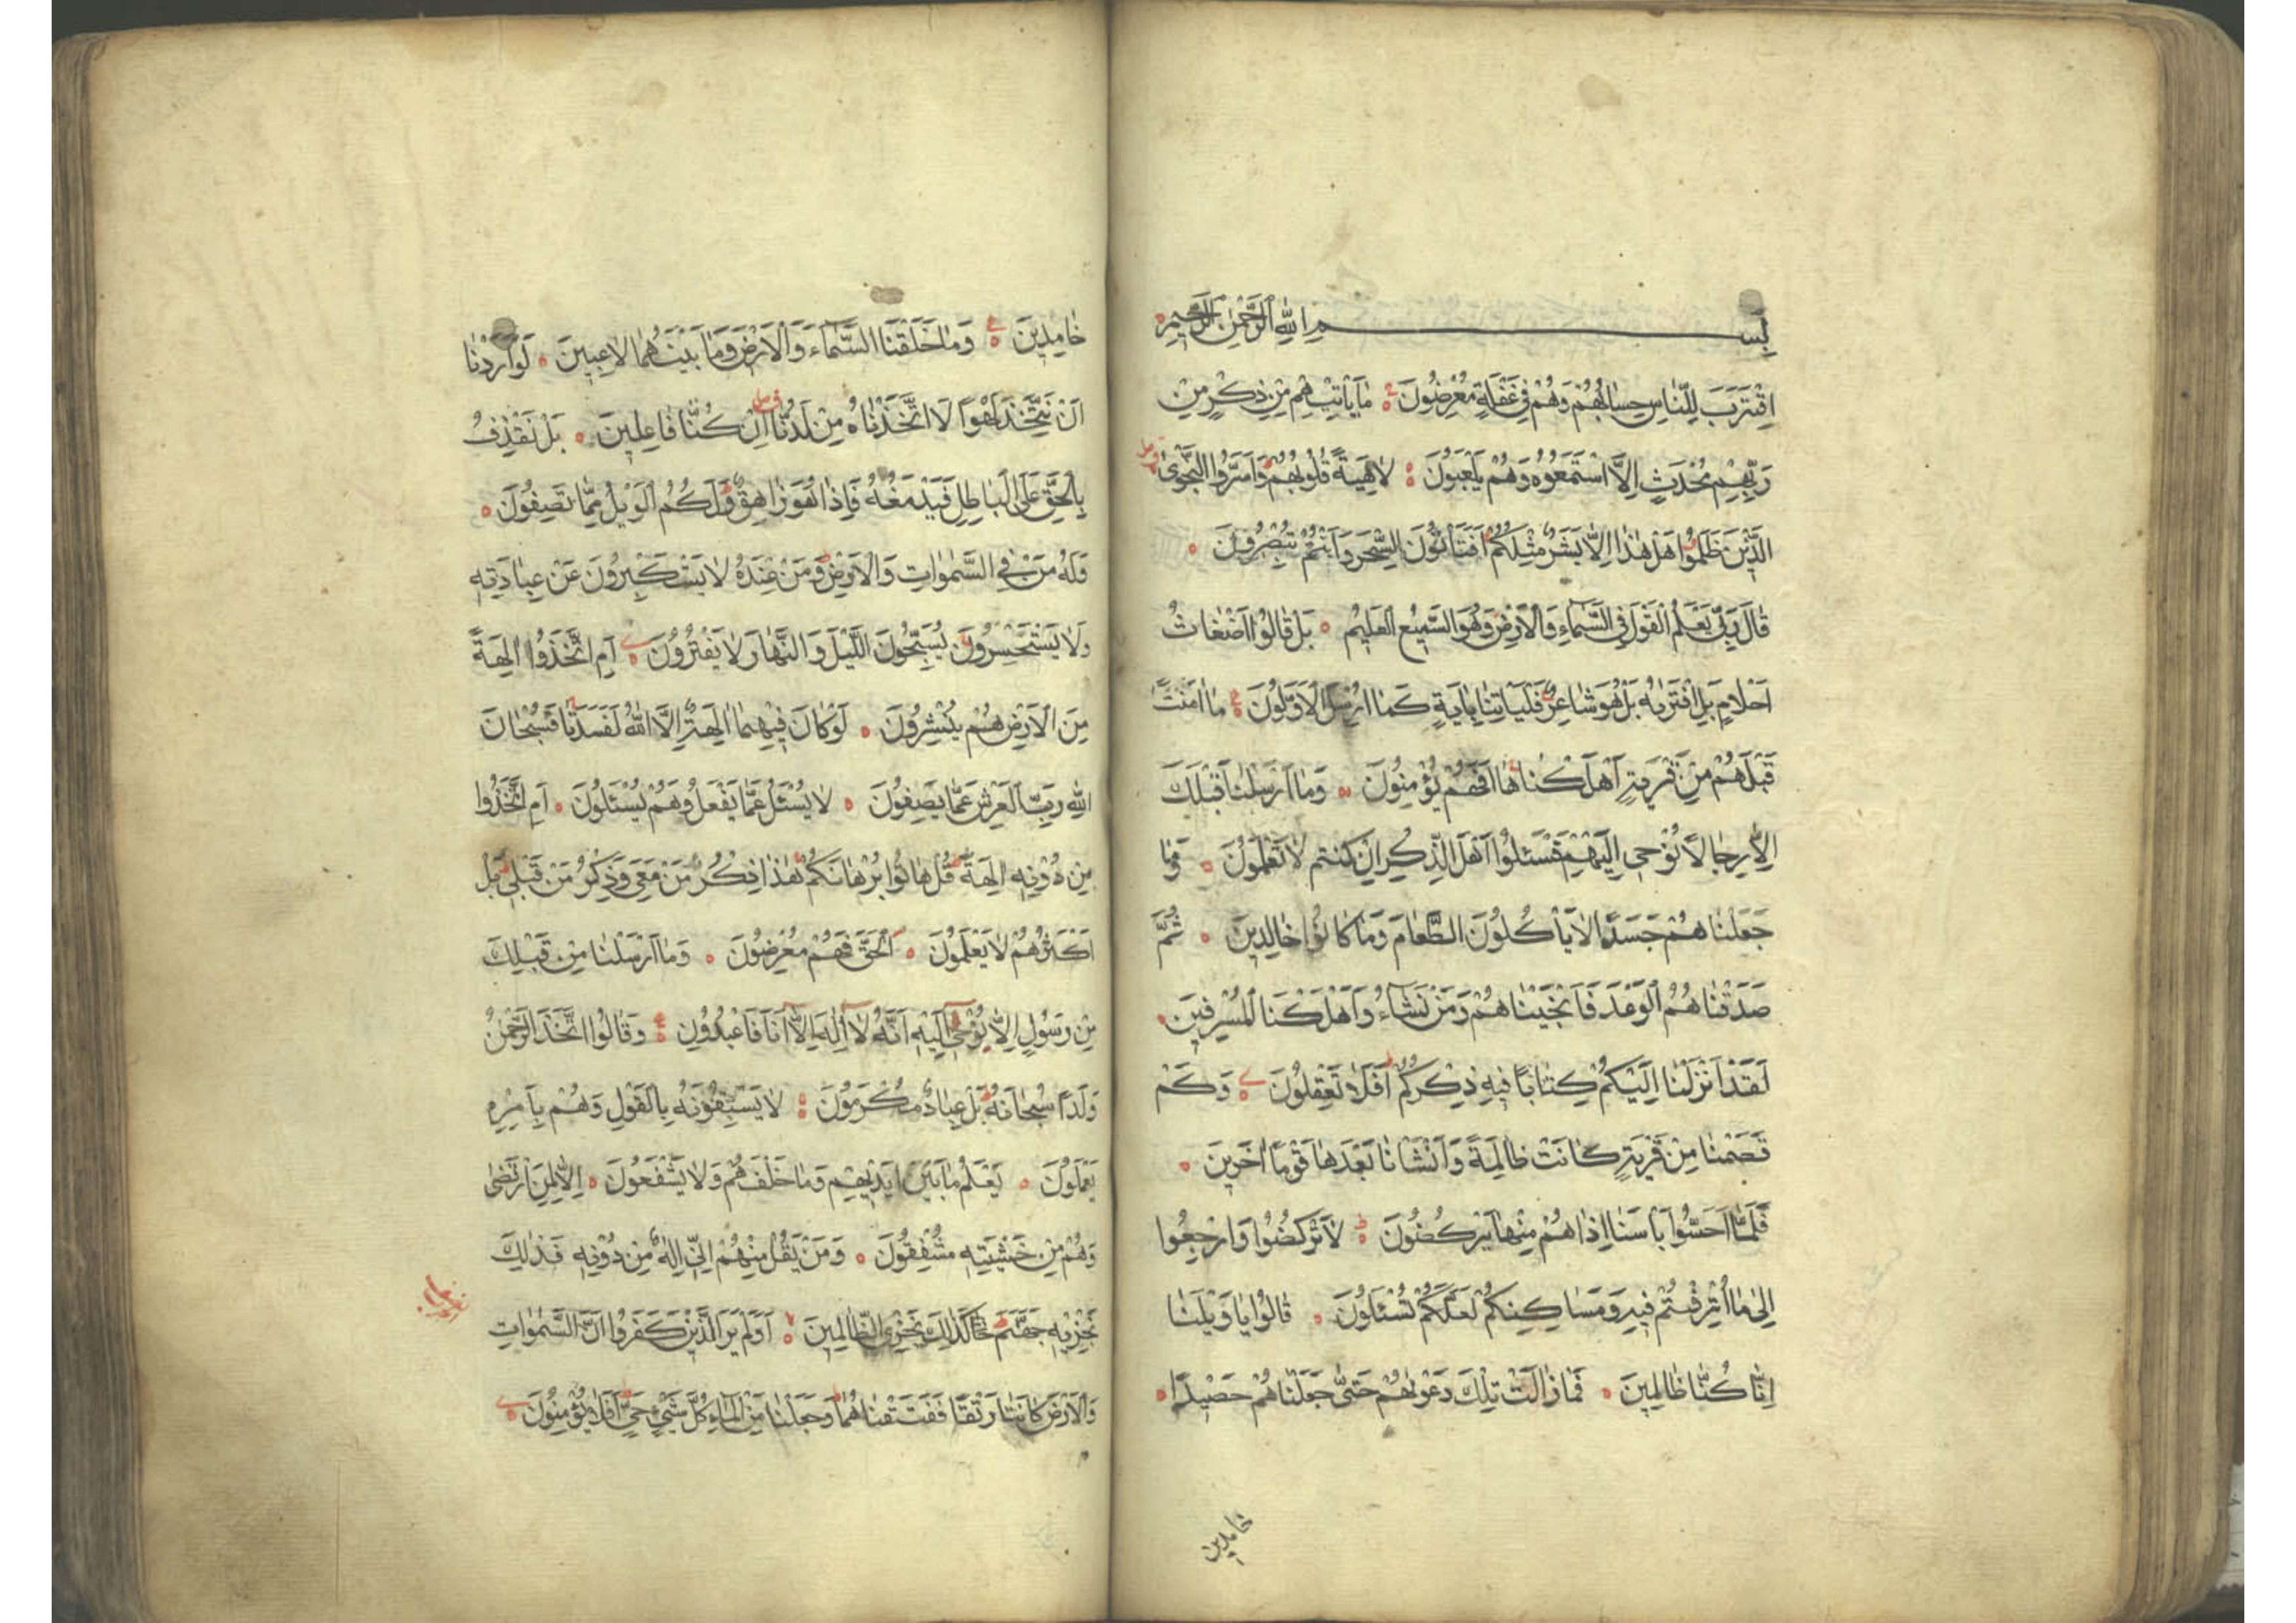 بِسْمِ اللّٰهِ الرَّحْمٰنِ الرَّحِيمِ
اِقْتَرَبَ لِلنَّاسِ حِسَابُهُمْ وَهُمْ فِي غَفْلَةٍ مُعْرِضُونَ مَا يَأْتِيهِمْ مِنْ ذِكْرٍ مِنْ
رَبِّهِمْ مُحْدَثٍ اِلَّا اسْتَمَعُوهُ وَهُمْ يَلْعَبُونَ لَاهِيَةً قُلُوبُهُمْ وَاَسَرُّوا النَّجْوَى
الَّذِينَ ظَلَمُوا هَلْ هٰذَا اِلَّا بَشَرٌ مِثْلُكُمْ اَفَتَأْتُونَ السِّحْرَ وَاَنْتُمْ تُبْصِرُونَ
قَالَ رَبِّي يَعْلَمُ الْقَوْلَ فِي السَّمَاءِ وَالْاَرْضِ وَهُوَ السَّمِيعُ الْعَلِيمُ بَلْ قَالُوا اَضْغَاثُ
اَحْلَامٍ بَلِ افْتَرٰيهُ بَلْ هُوَ شَاعِرٌ فَلْيَأْتِنَا بِاٰيَةٍ كَمَا اُرْسِلَ الْاَوَّلُونَ مَا اٰمَنَتْ
قَبْلَهُمْ مِنْ قَرْيَةٍ اَهْلَكْنَاهَا اَفَهُمْ يُؤْمِنُونَ وَمَا اَرْسَلْنَا قَبْلَكَ
اِلَّا رِجَالًا نُوحِي اِلَيْهِمْ فَسْئَلُوا اَهْلَ الذِّكْرِ اِنْ كُنْتُمْ لَا تَعْلَمُونَ وَمَا
جَعَلْنَاهُمْ جَسَدًا لَا يَأْكُلُونَ الطَّعَامَ وَمَا كَانُوا خَالِدِينَ ثُمَّ
صَدَقْنَاهُمُ الْوَعْدَ فَاَنْجَيْنَاهُمْ وَمَنْ نَشَاءُ وَاَهْلَكْنَا الْمُسْرِفِينَ
لَقَدْ اَنْزَلْنَا اِلَيْكُمْ كِتَابًا فِيهِ ذِكْرُكُمْ اَفَلَا تَعْقِلُونَ وَكَمْ
قَصَمْنَا مِنْ قَرْيَةٍ كَانَتْ ظَالِمَةً وَاَنْشَأْنَا بَعْدَهَا قَوْمًا اٰخَرِينَ
فَلَمَّا اَحَسُّوا بَأْسَنَا اِذَا هُمْ مِنْهَا يَرْكُضُونَ لَا تَرْكُضُوا وَارْجِعُوا
اِلٰى مَا اُتْرِفْتُمْ فِيهِ وَمَسَاكِنِكُمْ لَعَلَّكُمْ تُسْئَلُونَ قَالُوا يَا وَيْلَنَا
اِنَّا كُنَّا ظَالِمِينَ فَمَا زَالَتْ تِلْكَ دَعْوٰيهُمْ حَتّٰى جَعَلْنَاهُمْ حَصِيدًا
خامدين
خَامِدِينَ وَمَا خَلَقْنَا السَّمَاءَ وَالْاَرْضَ وَمَا بَيْنَهُمَا لَاعِبِينَ لَوْ اَرَدْنَا
اَنْ نَتَّخِذَ لَهْوًا لَاتَّخَذْنَاهُ مِنْ لَدُنَّا اِنْ كُنَّا فَاعِلِينَ بَلْ نَقْذِفُ
بِالْحَقِّ عَلَى الْبَاطِلِ فَيَدْمَغُهُ فَاِذَا هُوَ زَاهِقٌ وَلَكُمُ الْوَيْلُ مِمَّا تَصِفُونَ
وَلَهُ مَنْ فِي السَّمٰوَاتِ وَالْاَرْضِ وَمَنْ عِنْدَهُ لَا يَسْتَكْبِرُونَ عَنْ عِبَادَتِهِ
وَلَا يَسْتَحْسِرُونَ يُسَبِّحُونَ اللَّيْلَ وَالنَّهَارَ لَا يَفْتُرُونَ اَمِ اتَّخَذُوا اٰلِهَةً
مِنَ الْاَرْضِ هُمْ يُنْشِرُونَ لَوْ كَانَ فِيهِمَا اٰلِهَةٌ اِلَّا اللّٰهُ لَفَسَدَتَا فَسُبْحَانَ
اللّٰهِ رَبِّ الْعَرْشِ عَمَّا يَصِفُونَ لَا يُسْئَلُ عَمَّا يَفْعَلُ وَهُمْ يُسْئَلُونَ اَمِ اتَّخَذُوا
مِنْ دُونِهِ اٰلِهَةً قُلْ هَاتُوا بُرْهَانَكُمْ هٰذَا ذِكْرُ مَنْ مَعِيَ وَذِكْرُ مَنْ قَبْلِي بَلْ
اَكْثَرُهُمْ لَا يَعْلَمُونَ الْحَقَّ فَهُمْ مُعْرِضُونَ وَمَا اَرْسَلْنَا مِنْ قَبْلِكَ
مِنْ رَسُولٍ اِلَّا يُوحٰى اِلَيْهِ اَنَّهُ لَا اِلٰهَ اِلَّا اَنَا فَاعْبُدُونِ وَقَالُوا اتَّخَذَ الرَّحْمٰنُ
وَلَدًا سُبْحَانَهُ بَلْ عِبَادٌ مُكْرَمُونَ لَا يَسْبِقُونَهُ بِالْقَوْلِ وَهُمْ بِاَمْرِهِ
يَعْمَلُونَ يَعْلَمُ مَا بَيْنَ اَيْدِيهِمْ وَمَا خَلْفَهُمْ وَلَا يَشْفَعُونَ اِلَّا لِمَنِ ارْتَضٰى
وَهُمْ مِنْ خَشْيَتِهِ مُشْفِقُونَ وَمَنْ يَقُلْ مِنْهُمْ اِنِّي اِلٰهٌ مِنْ دُونِهِ فَذٰلِكَ
نَجْزِيهِ جَهَنَّمَ كَذٰلِكَ نَجْزِي الظَّالِمِينَ اَوَلَمْ يَرَ الَّذِينَ كَفَرُوا اَنَّ السَّمٰوَاتِ
وَالْاَرْضَ كَانَتَا رَتْقًا فَفَتَقْنَاهُمَا وَجَعَلْنَا مِنَ الْمَاءِ كُلَّ شَيْءٍ حَيٍّ اَفَلَا يُؤْمِنُونَ